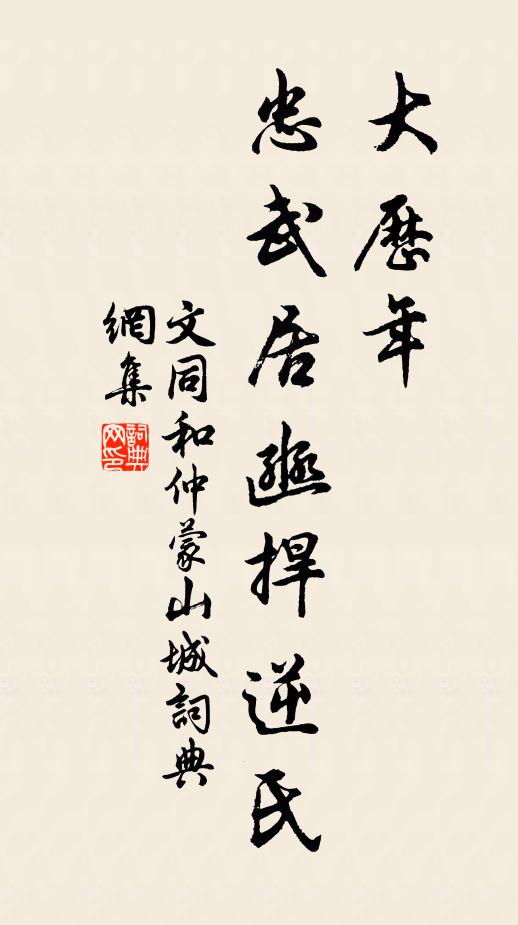 大歷年
忠武居邀捍逆氏
文同和仲蒙山城詞典
網集
詞典網印